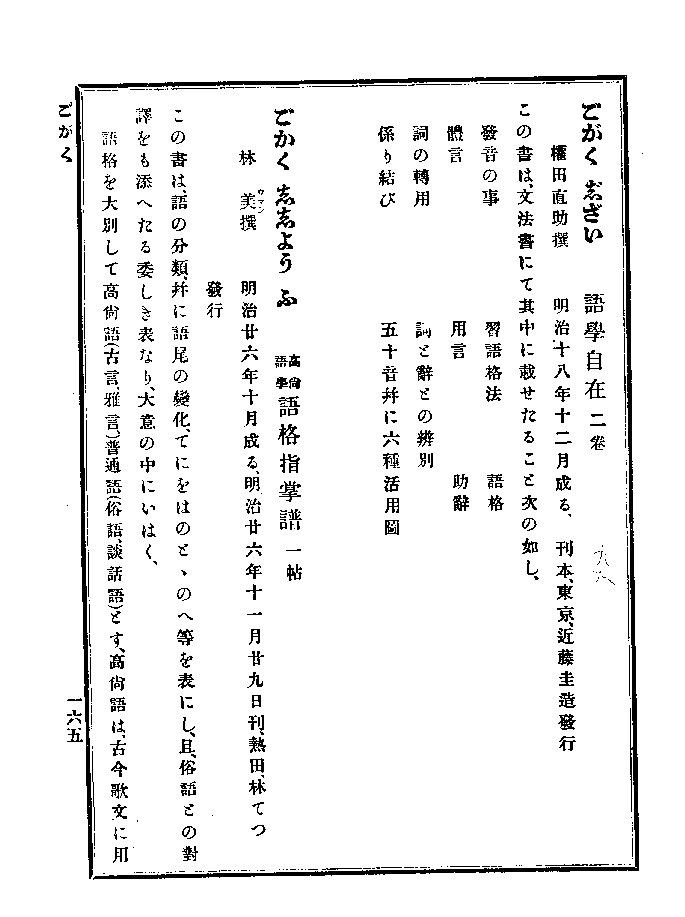 ごがく
ごがく 志ざい　語學自在 二卷
權田直助撰　明治十八年十二月成る、刊本、東京、近藤圭造發行
この書は、文法書にて其中に載せたること次の如し、
發音の事　習語格法　語格
體言　用言　助辭
詞の轉用　詞と辭との辨別
係り結び　五十音幷に六種活用圖
ごかく 志志よう ふ　高尙語學 語格指掌譜 一帖
林　美撰　明治廿六年十月成る、明治廿六年十一月廿九日刊、熱田、林てつ
ウマシ
發行
この書は、語の分類、幷に語尾の變化、てにをはのとゝのへ等を表にし、且、俗語との對
譯をも添へたる委しき表なり、大意の中にいはく、
語格を大別して高尙語(古言、雅言、)普通語(俗語、談話語)とす、高尙語は、古今歌文に用
一六五